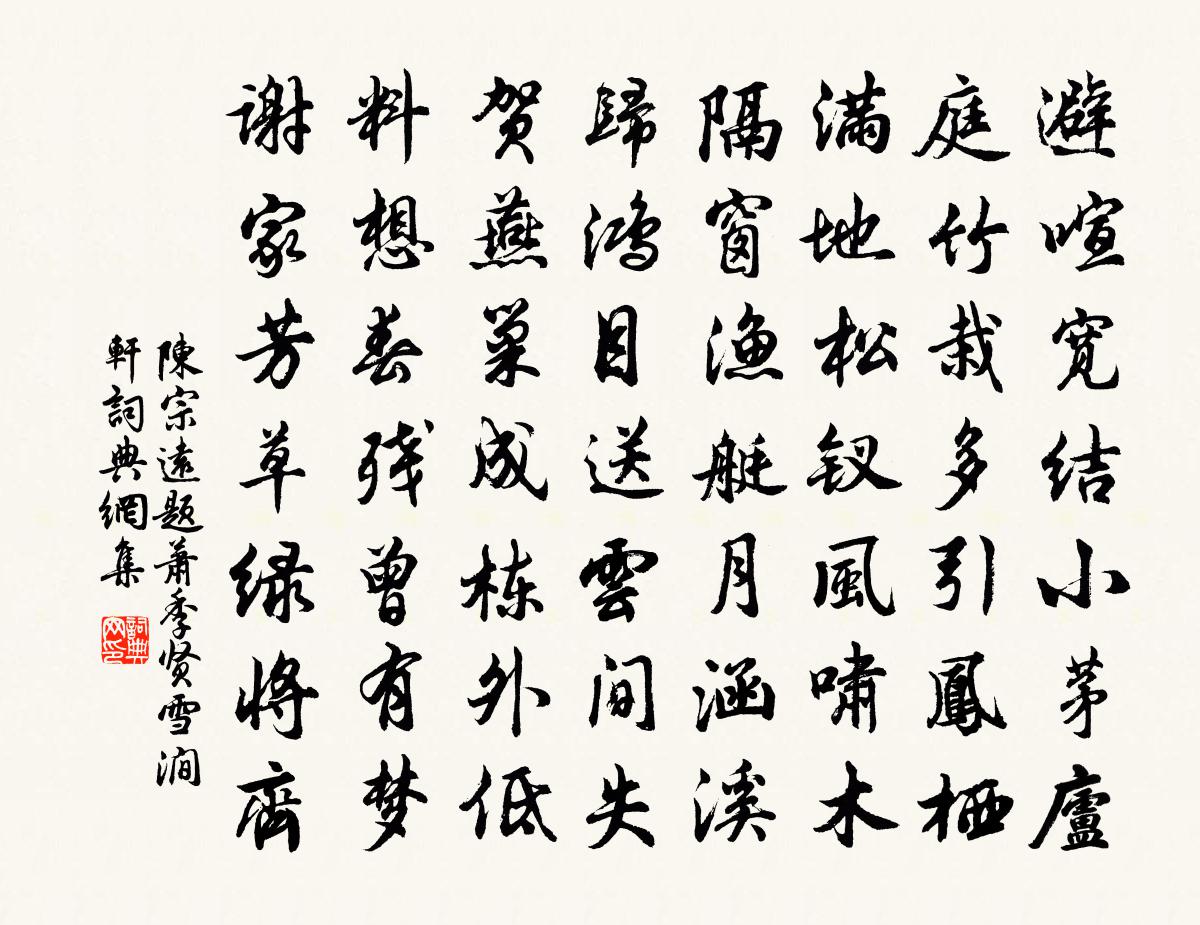 避喧寛结小茅廬
庭竹栽多引鳳栖
满地松钗風啸木
隔窗渔艇月涵溪
歸鸿目送雲间失
贺燕巢成栋外低
料想春残曾有梦
谢家芳草绿将齊
陳宗遠题蕭季贤雪澗
軒詞典網集
詞典网印